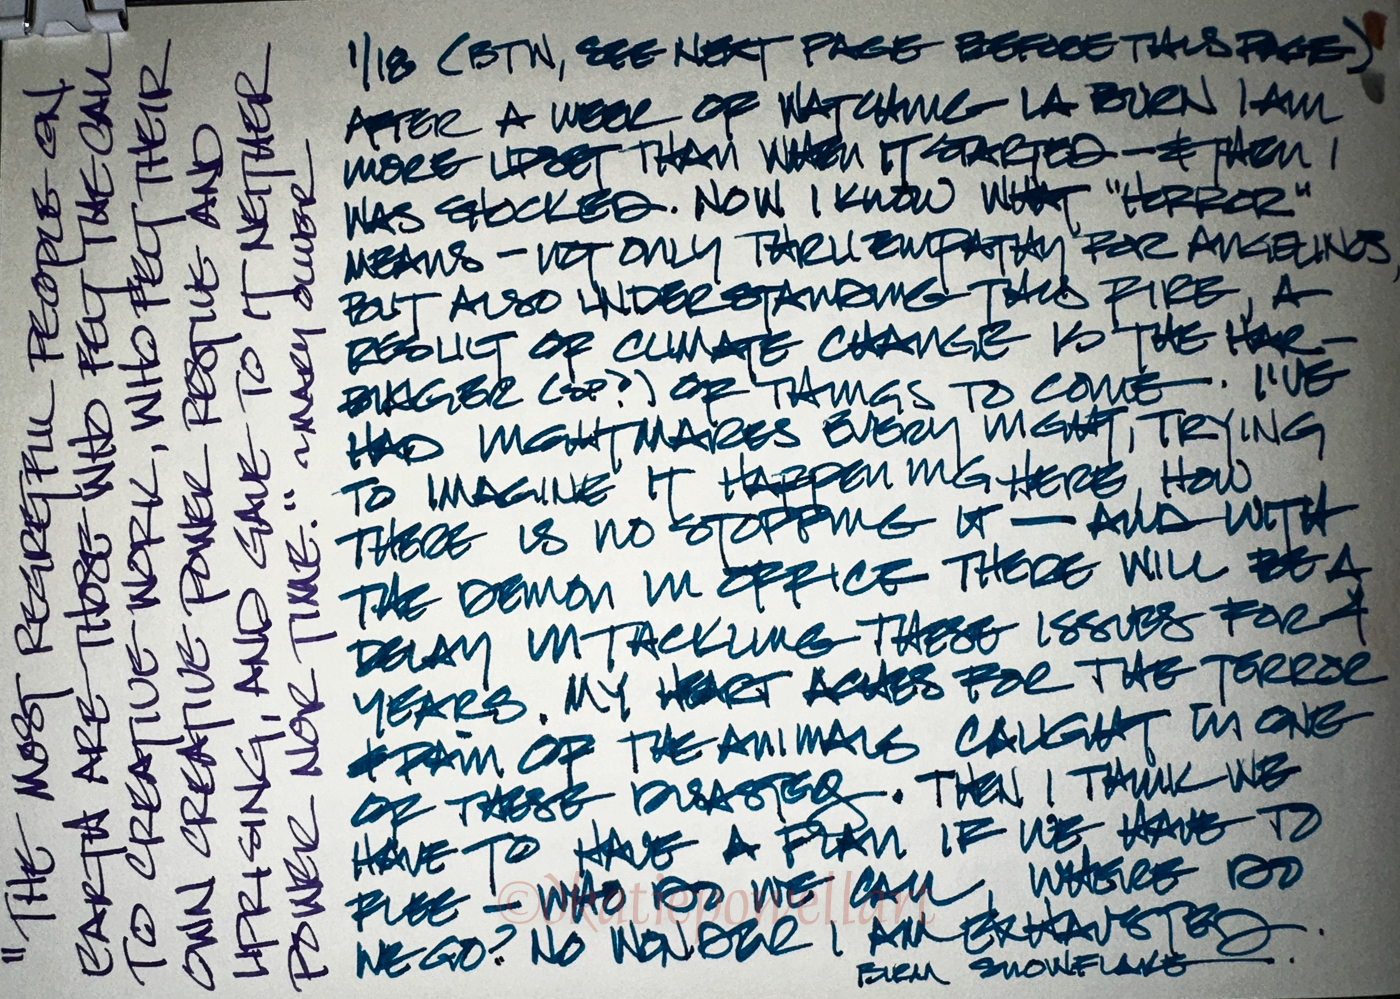 "THE MOST REGRETFUL PEOPLE ON
EARTH ARE THOSE WHO FELT THE CALL
TO CREATIVE WORK, WHO FELT THEIR
OWN CREATIVE POWER RESTIVE AND
UPRISING, AND GAVE TO IT NEITHER
POWER NOR TIME." ~MARY OLIVER
1/18 (BTW, SEE NEXT PAGE BEFORE THIS PAGE)
AFTER A WEEK OF WATCHING LA BURN I AM
MORE UPSET THAN WHEN IT STARTED — & THEN I
WAS SHOCKED. NOW I KNOW WHAT "HORROR"
MEANS — NOT ONLY THRU EMPATHY FOR ANGELINOS
BUT ALSO UNDERSTANDING THIS FIRE, A
RESULT OF CLIMATE CHANGE IS THE HAR-
BINGER (SP?) OF THINGS TO COME. I'VE
HAD NIGHTMAIRES EVERY NIGHT, TRYING
TO IMAGINE IT HAPPENING HERE, HOW
THERE IS NO STOPPING IT — AND WITH
THE DEMON IN OFFICE THERE WILL BE A
DELAY IN TACKLING THESE ISSUES FOR 4
YEARS. MY HEART ACHES FOR THE TERROR
& PAIN OF THE ANIMALS CAUGHT IN ONE
OF THESE DISASTERS. THEN I THINK WE
HAVE TO HAVE A PLAN IF WE HAVE TO
FLEE — WHO DO WE CALL, WHERE DO
WE GO? NO WONDER I AM EXHAUSTED.
BIRM SNOWFLAKE
©Dkatiepowellart